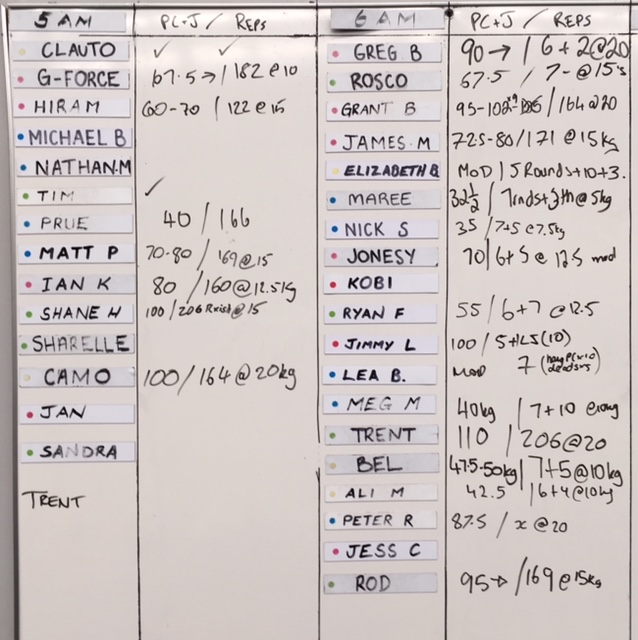 5 AM PC+J / REPS
CLAUTO ✓ ✓
G-FORCE 67.5→ / 182 @ 10
HIRAM 60-70 / 122 @ 15
MICHAEL B
NATHAN.M
TIM ✓
PRUE 40 / 166
MATT P 70-80 / 169 @ 15
IAN K 80 / 160 @ 12.5kg
SHANE H 100 / 206 @ 15
SHARELLE
CAMO 100 / 164 @ 20kg
JAN
SANDRA
TRENT
6 AM PC+J / REPS
GREG B 90 → / 6 + 2 @ 20
ROSCO 67.5 / 7- @ 15's
GRANT B 95-102 / 164 @ 20
JAMES M 72.5-80 / 171 @ 15kg
ELIZABETH B MOD | 5 Rounds + 10 + 3.
MAREE 32½ / 7rnds + 3 @ 5kg
NICK S 35 / 7+5 @ 7.5kg
JONESY 70 | 6+5 @ 12.5 mod
KOBI
RYAN F 55 / 6+7 @ 12.5
JIMMY L 100 / 5+ (10)
LEA B. MOD 7
MEG M 40kg | 7+10 @ 10kg
TRENT 110 | 206 @ 20
BEL 47.5-50kg | 7+5 @ 10kg
ALI M 42.5 | 6+4 @ 10kg
PETER R 87.5 / x @ 20
JESS C
ROD 95→ / 169 @ 15kg